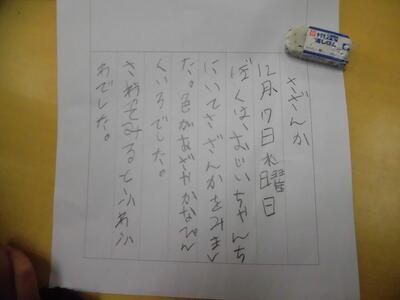 さざんか
12月17日水曜日
ぼくは、おじいちゃんち
にいてさざんかをみまし
た。色があざやかなぴん
くいろでした。
さわってみるとふわふ
わでした。